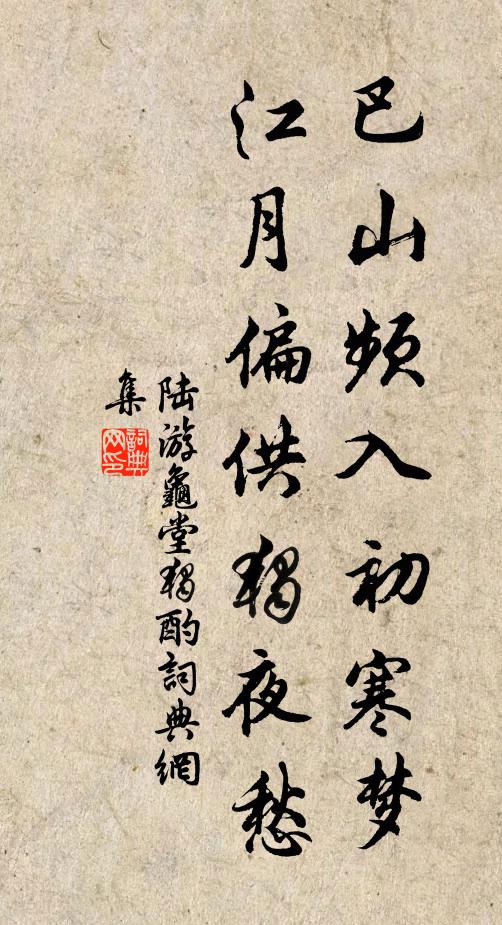 巴山频入初寒梦
江月偏供独夜愁
陆游龜堂独酌詞典網
集
詞典
网印